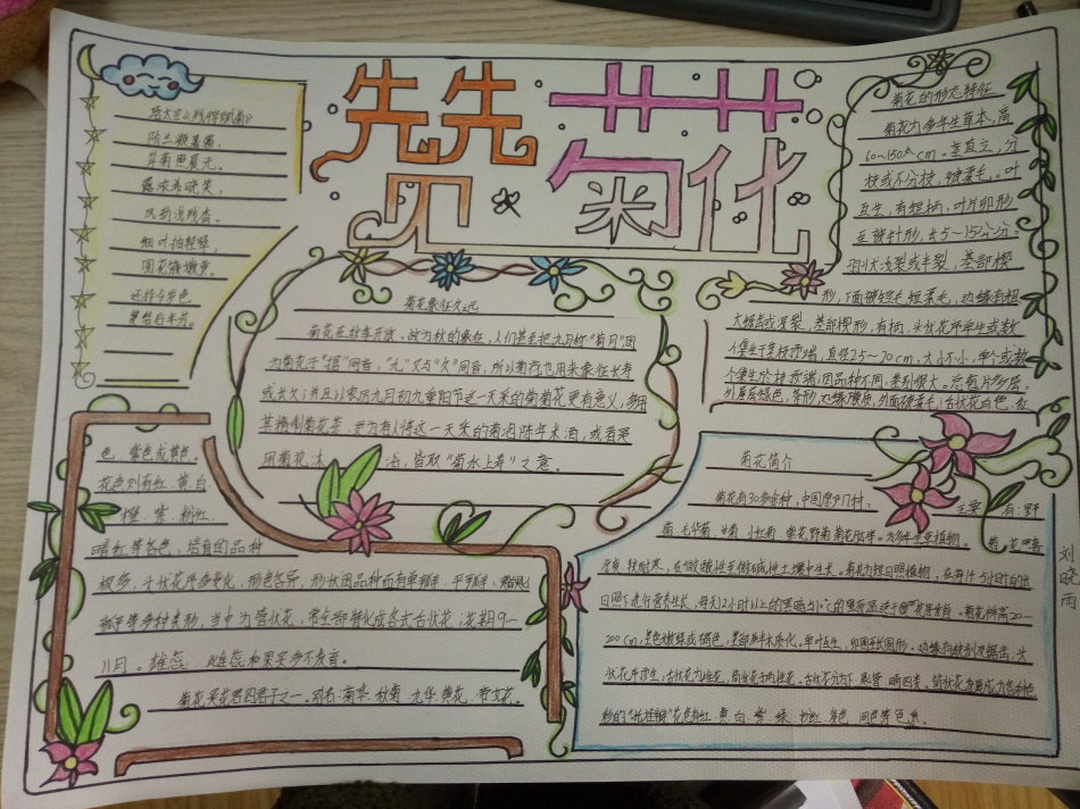 赞菊花
唐太宗《残菊赋菊》
阶兰凝曙霜,
岸菊照晨光。
露浓希晓笑,
风劲浅残香。
细叶抽轻翠,
圆花簇嫩黄。
还持今岁色
复结后年芳。
菊花象征久远
菊花在秋季开放,故为秋的象征,人们甚至把九月称"菊月"因
为菊花于"据"同音,"九"又与"久"同音,所以菊花也用来象征长寿
或长久;并且以农历九月初九重阳节这一天采的菊花更有意义,多用
其精制菊花茶,更为有人将这一天采的菊泡陈年米酒,或者是
用菊花沐浴,皆取"菊水上寿"之意。
菊花的形态特征
菊花为多年生草本,高
60~150cm。茎直立,分
枝或不分枝,被柔毛。叶
互生,有短柄,叶片卵形
至披针形,长5~15公分。
羽状浅裂或半裂,基部楔
形,下面被短毛 短柔毛,边缘有粗
大锯齿或深裂,基部楔形,有柄,头状花序单生或数
个集生于茎枝顶端,直径2.5~20cm,大小不一,单个或数
个集生于茎枝顶端;因品种不同,差别很大。总苞片多层。
外层绿色,条形,边缘膜质,外面被柔毛;舌状花白色、红
色、紫色或黄色。
花色则有红、黄、白
橙、紫、粉红、
暗红等各色,培育的品种
极多,头状花序多变化,形色各异,形状因品种而有单瓣、平瓣、
等多种类形,当中为管状花,常全部特化成各式舌状花;花期9—
11月。雄蕊、雌蕊和果实多不发育。
菊花是花君四君子之一。别名:菊华、秋菊、九华、黄花、帝女花。
菊花简介
菊花有30多余种,中国原产17种,主要有:野
菊、毛华菊、菊、小红菊、紫花野菊、菊花脑等。为多年生草植物。菊花喜
凉爽、较耐寒,在微酸性至微碱性土壤中生长。菊花为短日照植物,在每14.5小时的长
日照下进行营养生长,每天12小时以上的黑暗与10℃的夜温适于花芽发育。菊花株高20—
200cm,茎色嫩绿或褐色,基部半木质化。单叶互生,卵圆至长圆形,边缘有缺刻及锯齿。头
状花序顶生,舌状花为雌花,筒状花为两性花。舌状花分为平、匙、管、畸四类,筒状花发展成为各种色
彩的"托桂瓣"花色有红、黄、白、紫、绿、粉红、复色、间色等色系。
刘晓雨